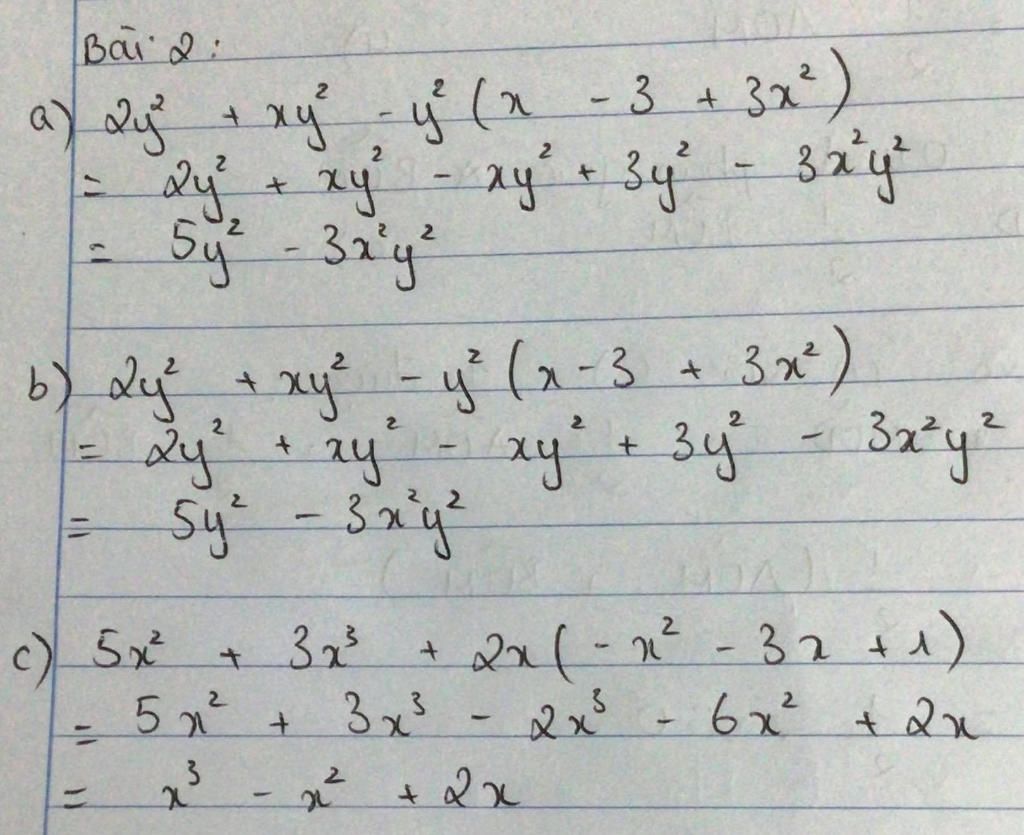 Bài 2:
a) 2y² + xy² - y² (x - 3 + 3x²)
= 2y² + xy² - xy² + 3y² - 3x²y²
= 5y² - 3x²y²
b) 2y² + xy² - y² (x - 3 + 3x²)
= 2y² + xy² - xy² + 3y² - 3x²y²
= 5y² - 3x²y²
c) 5x² + 3x³ + 2x (-x² - 3x + 1)
= 5x² + 3x³ - 2x³ - 6x² + 2x
= x³ - x² + 2x